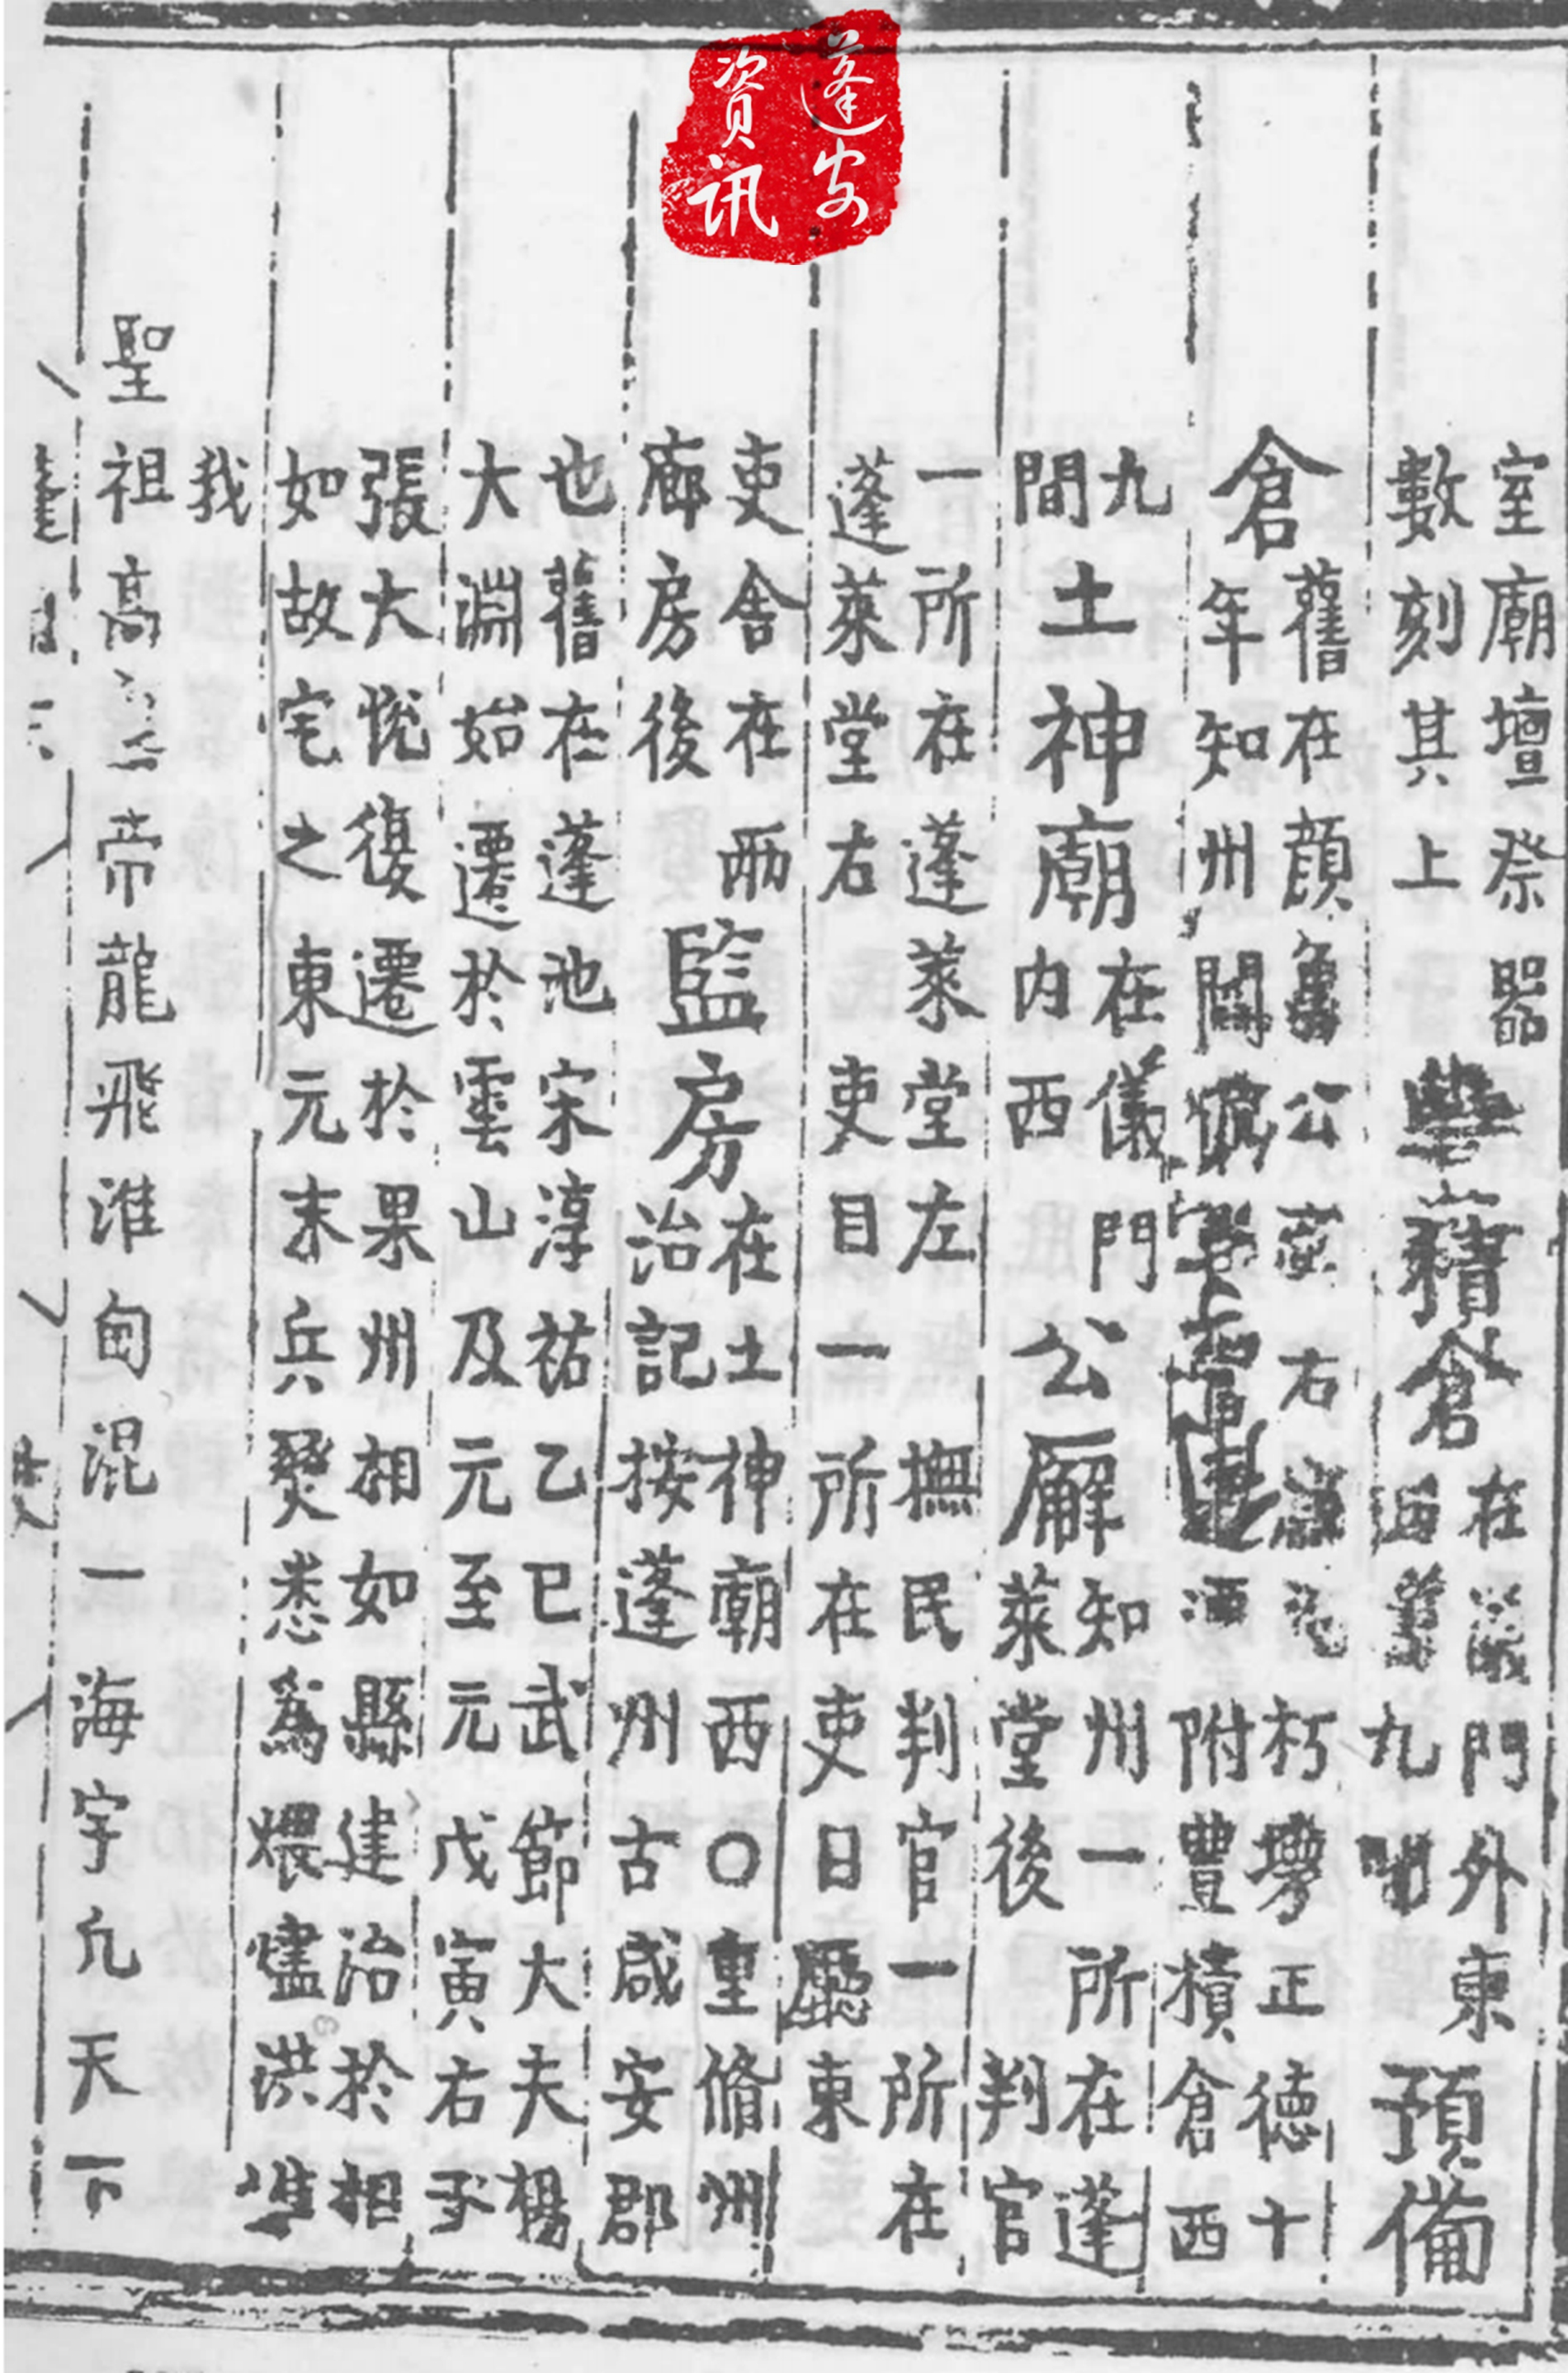 室廟壇祭器
數刻其上
積倉
在儀門外東
九
預備
倉
舊在顔魯公 右 朽壞正德十
年知州 附豐積倉西
九
間
土神廟
在儀門
内西
公廨
知州一所在蓬
萊堂後 判官
一所在蓬萊堂左 撫民判官一所在
蓬萊堂右 吏目一所在吏目廳東
吏舍在兩
廊房後
監房
在土神廟西○重脩州
治記按蓬州古咸安郡
也舊在蓬池宋淳祐乙巳武節大夫楊
大淵始遷於雲山及元至元戊寅右丞
張大悅復遷於果州相如縣建治於相
如故宅之東元末兵燹悉為煨燼洪惟
我
聖祖高 帝龍飛淮甸混一海宇凢天下
蓬安
資訊